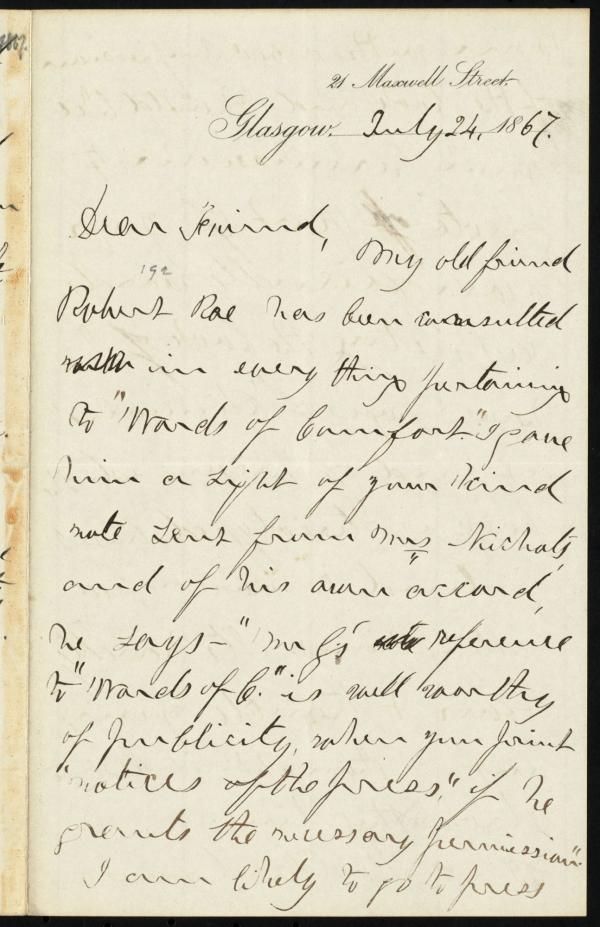 21 Maxwell Street.
Glasgow. July 24, 1867.
Dear Friend,
My old friend
192
Robert Rae has been consulted
in every thing pertaining
to "Words of Comfort." I gave
him a sight of your kind
note sent from Mrs Nichols,
and of his own accord,
he says - "Mr G's reference
to "Words of C." is well worthy
of publicity, when you print
"notices of the press", if he
grants the necessary permission".
I am likely to go to press